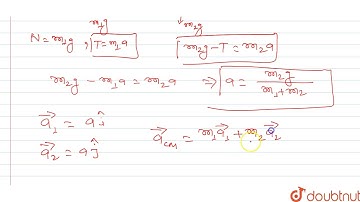 m₁g ↓m₂g
N = m₁g , T = m₁a m₂g - T = m₂a
m₂g - m₁a = m₂a ⇒ a = m₂g / m₁+m₂
a⃗₁ = a î
a⃗₂ = a ĵ a⃗cm = m₁a⃗₁ + m₂a⃗₂
doubtnut